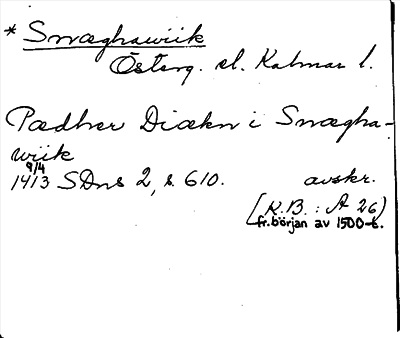 * Snæghawiik
Österg. el. Kalmar l.
Pædher Diækn i Snægha-
wiik
9/4
1413 SDns 2, s. 610. avskr.
[K.B.: A 26)
fr. början av 1500-t.